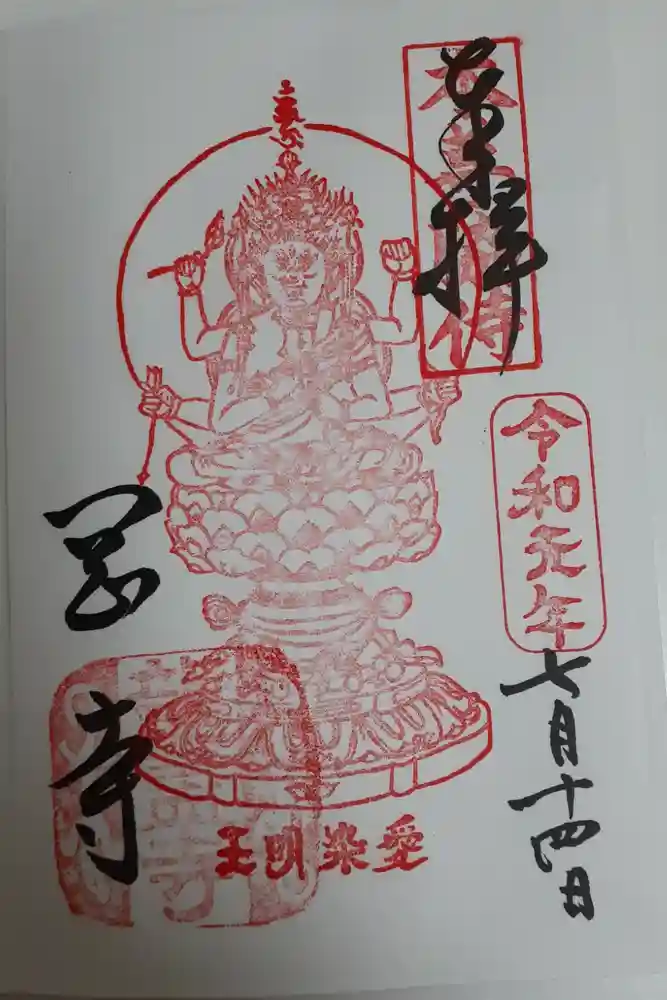 奉拝
令和元年
七月十四日
愛染明王
岡
寺